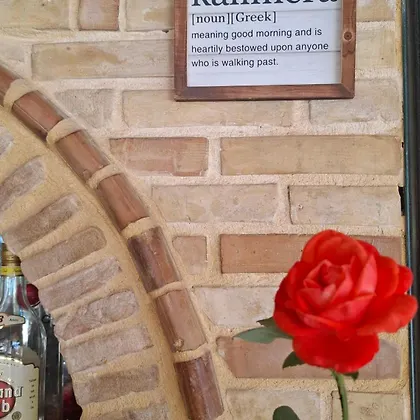 [noun][Greek]
meaning good morning and is
heartily bestowed upon anyone
who is walking past.